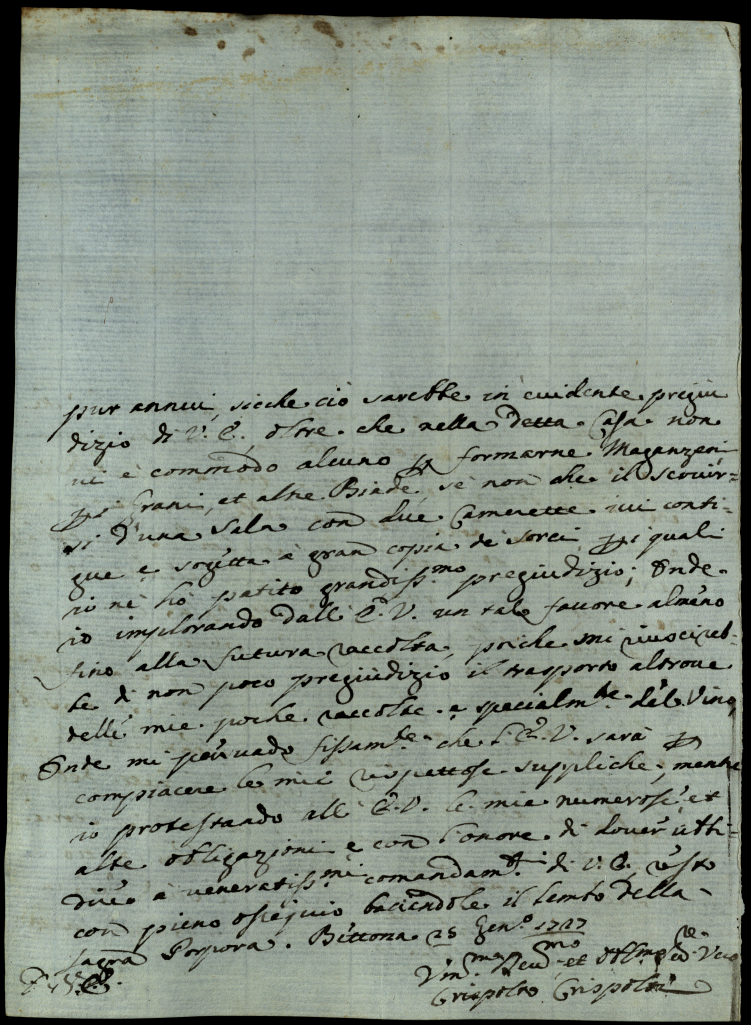 pur annui, sicche ciò sarebbe in evidente pregiu
dizio di V. E., oltre che nella detta Casa non
vi è commodo alcuno per formarne Maganzeni
per i Grani, et altre Biade, se non che il servir=
si d'una Sala con due Camerette ivi conti=
gue e sogetta a gran copia de sorci, per i quali
io ne hò patito grandiss.mo pregiudizio; Onde
io implorando dall'E. V. un tale favore almeno
fino alla futura raccolta, poiche mi riuscireb=
be di non poco pregiudizio il trasporto altrove
delle mie poche raccolte e specialm.te del Vino,
Onde mi persuado fissam.te che l'E. V. sarà per
compiacere le mie rispettose suppliche, mentre
io protestando all'E. V. le mie numerose, et
alte obligazioni e con l'onore di dover ubbi=
dire a veneratiss.mi comandam.ti di V. E., resto
con pieno ossequio baciandole il lembo della
sagra Porpora. Bettona 25 Gen.o 1727
Um.mo Dev.mo et Obl.mo Ser.re Vero
Crispolto Crispolti